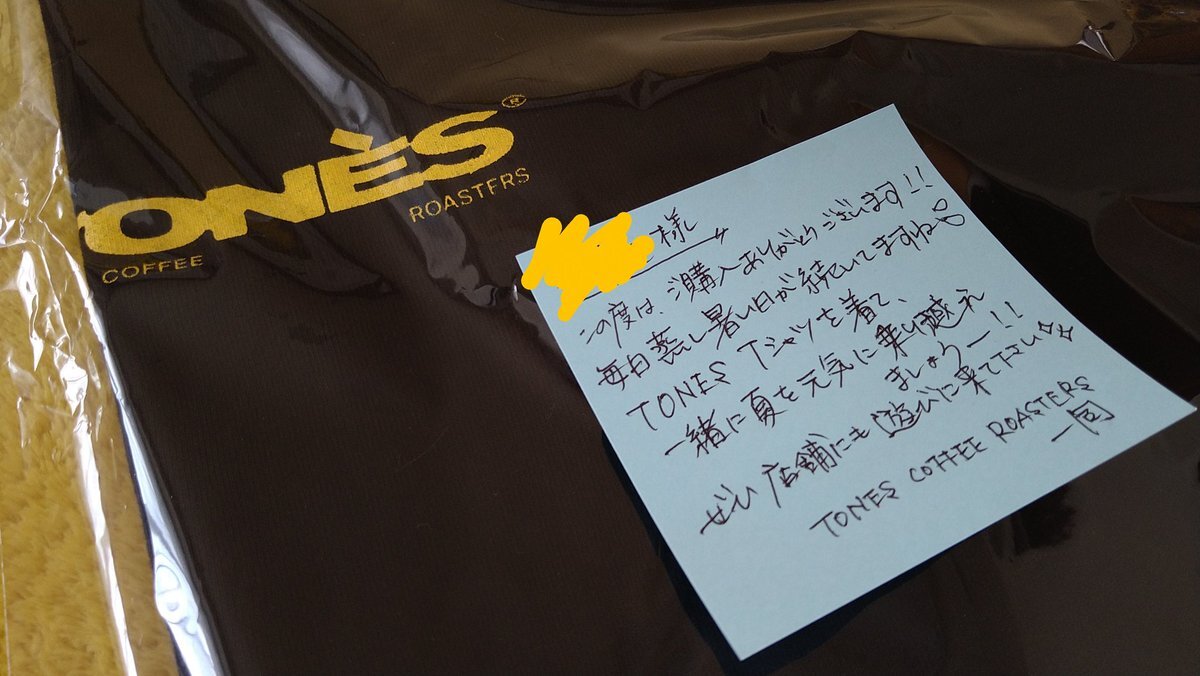 TONÈS®
COFFEE ROASTERS
様
この度は、ご購入ありがとうございます!!
毎日蒸し暑い日が続いてますね
TONES Tシャツを着て、
一緒に夏を元気に乗り越え
ましょうー!!
ぜひ店舗にも遊びに来て下さい
TONES COFFEE ROASTERS
一同